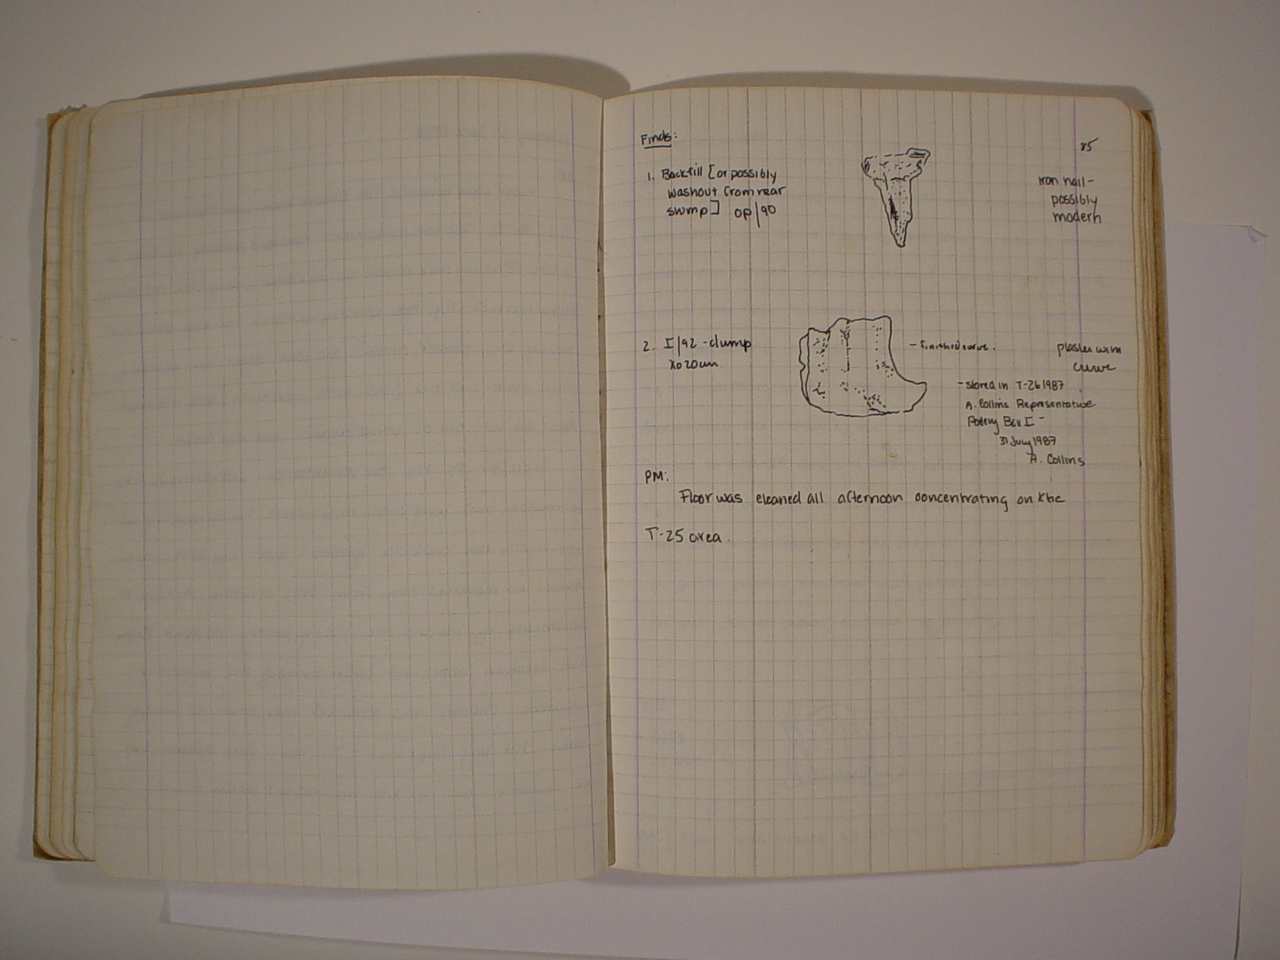 85
Finds:
1. Backfill [or possibly
washout from rear
swmp] op/90
iron nail-
possibly
modern
2. I/92 - clump
20cm
- finished curve.
plaster with
curve
- stored in T-26 1987
A. Collins Representative
Pottery Box I -
31 July 1987
A. Collins
PM:
Floor was cleaned all afternoon concentrating on the
T-25 area.